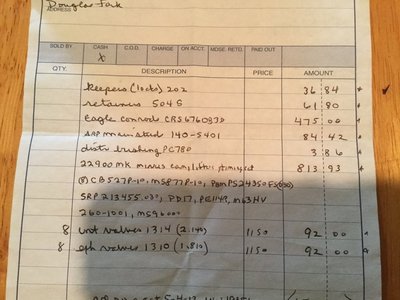 Douglas
ADDRESS
SOLD BY CASH C.O.D. CHARGE ON ACCT. MDSE. RETD. PAID OUT
X
QTY. DESCRIPTION PRICE AMOUNT
Keepers (locks) 202 36 84
retainers 504S 61 80
Eagle conrods CRS6760B3D 475 00
ARP main stud 140-5401 84 42
distr bushing PG780 3 86
22900 MK 813 93
(8) CB527P-10, MS877P-10,
SRP 213455.030, PD17, PE114S, M63HV
260-1001, MS96000
8 int valves 1314 (2.140) 1150 92 00
8 exh valves 1310 (1.810) 1150 92 00